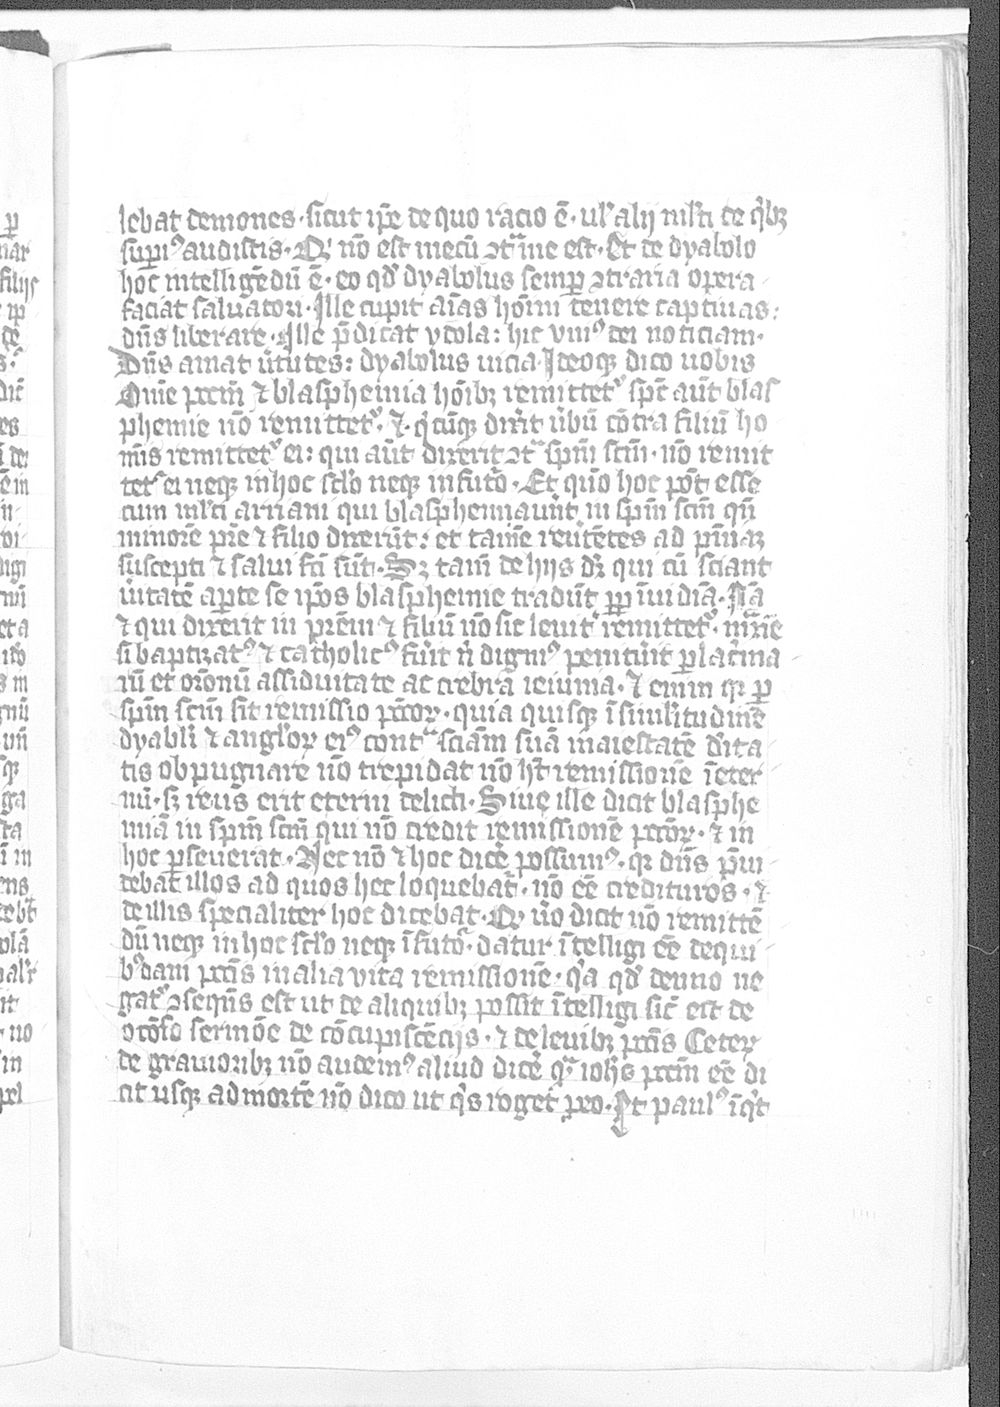 lebat demones · sicut ip̄e de quo racio ē · ul' alij nisi de q'bꝫ
suꝑiꝰ audistis · Qͥ nō est mecū ꝯtᵃ me est · Et de dyabolo
hoc intelligēdū ē · eo qd' dyabolus semꝑ ꝯtraria opera
faciat saluatori · Ille cupit aīas hōīm tenere captiuas :
dn̄s liberare · Ille p̄dicat ydola : hic vniꝰ dei noticiam ·
Dn̄s amat ūtutes : dyabolus uicia · Ideoqꝫ dico uobis
Om̄e pctm̄ ⁊ blasphemia hōībꝫ remittet᷑ sp̄c aūt blas
phemie nō remittet᷑ · ⁊ q'cūqꝫ dix̄it ūbū cōtra filiū ho
mīs remittet᷑ ei : qui aūt dixerit ꝯtᵃ sp̄m sc̄m · nō remit
tet᷑ ei neqꝫ in hoc sc̄lo neqꝫ in futō · Et quō hoc pōt esse
cum ml'ti arriani qui blasphemauūt in sp̄m sc̄m qn̄
minorē pr̄e ⁊ filio dixerūt : et tam̄e reūtētes ad pniāꝫ
suscepti ⁊ salui fc̄i sūt · Sꝫ tam̄ de hijs dr̄ qui cū sciant
ūitatē aꝑte se ip̄os blasphemie tradūt ꝓꝑ īuidiā · Nā
⁊ qui dixerit in pr̄em ⁊ filiū nō sic leuit᷑ remittet᷑ ·
si baptizatꝰ ⁊ catholicꝰ fūit n̄ digniꝰ penitūit ꝑ lac̄ma
rū et or̄onū assiduitate ac crebra ieiunia · ⁊ enim qꝫ ꝑ
sp̄m sc̄m fit remissio pctōꝝ · quia quisqꝫ ī similitudinē
dyabli ⁊ angl'oꝝ eiꝰ contᵃ sciām suā maiestatē dīta
tis obpugnare nō trepidat nō hꝫ remissionē ī eter
nū · sꝫ reus erit eterni delicti · Siue ille dicit blasphe
miā in sp̄m sc̄m qui nō credit remissionē pctōꝝ · ⁊ in
hoc ꝑseuerat · Nec nō ⁊ hoc dicē possumꝰ · qꝫ dn̄s p̄ui
debat illos ad quos hec loquebat᷑ · nō eē credituros · ⁊
de illis specialiter hoc dicebat · Qͥ ūo dicit nō remittē
dū neqꝫ in hoc sc̄lo neqꝫ ī futō · datur ītelligi eē de qui
bꝰdam pctīs in alia vita remissionē · q'a qd' de uno ne
gat᷑ ꝯsequēs est ut de aliquibꝫ possit ītelligi sic̄ est de
ocōso sermōe de cōcupiscēcijs · ⁊ de leuibꝫ pctīs Ceteꝝ
de grauioribꝫ nō audemꝰ aliud dicē qᵃ ioh̄s pctm̄ eē di
cit usqꝫ ad mortē nō dico ut q's roget ꝑ eo · Et paulꝰ īq't